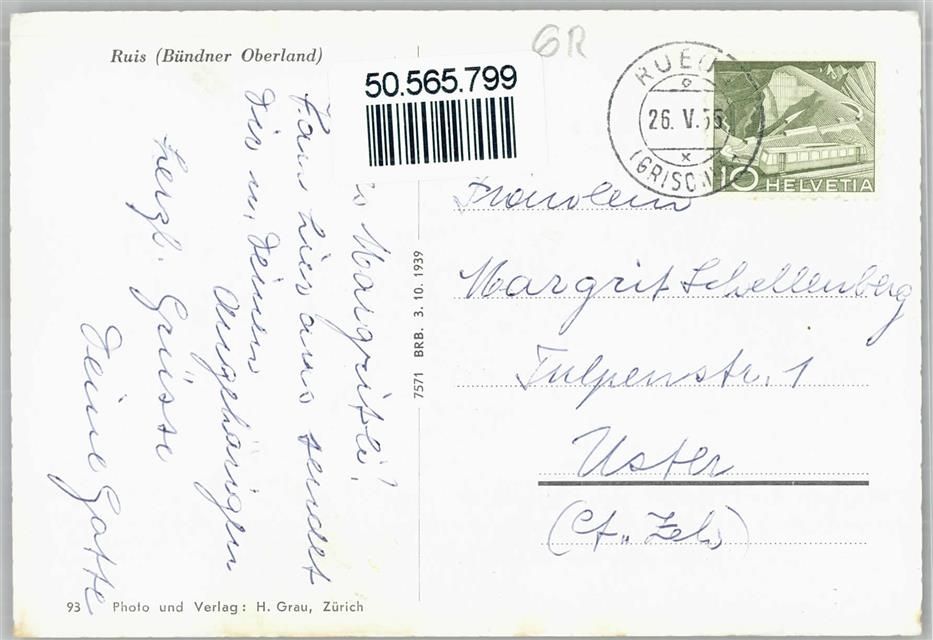 Ruis (Bündner Oberland)
GR
50.565.799
RUEUN
26. V. 56
(GRISCH.)
10 HELVETIA
Margritli!
Von hier aus sendet
Dir u. Deinen
Angehörigen
herzl. Grüsse
Deine Gotte
7571 BRB. 3. 10. 1939
Fräulein
Margrit Schellenberg
Tulpenstr. 1
Uster
(Ct. Zch.)
93 Photo und Verlag: H. Grau, Zürich